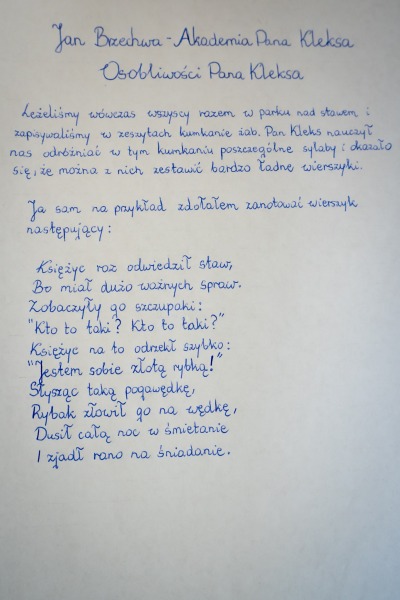 Jan Brzechwa - Akademia Pana Kleksa
Osobliwości Pana Kleksa
Leżeliśmy wówczas wszyscy razem w parku nad stawem i
zapisywaliśmy w zeszytach kumkanie żab. Pan Kleks nauczył
nas odróżniać w tym kumkaniu poszczególne sylaby i okazało
się, że można z nich zestawić bardzo ładne wierszyki.
Ja sam na przykład zdołałem zanotować wierszyk
następujący:
Księżyc raz odwiedził staw,
Bo miał dużo ważnych spraw.
Zobaczyły go szczupaki:
"Kto to taki? Kto to taki?"
Księżyc na to odrzekł szybko:
"Jestem sobie złotą rybką!"
Słysząc taką pogawędkę,
Rybak złowił go na wędkę,
Dusił całą noc w śmietanie
I zjadł rano na śniadanie.